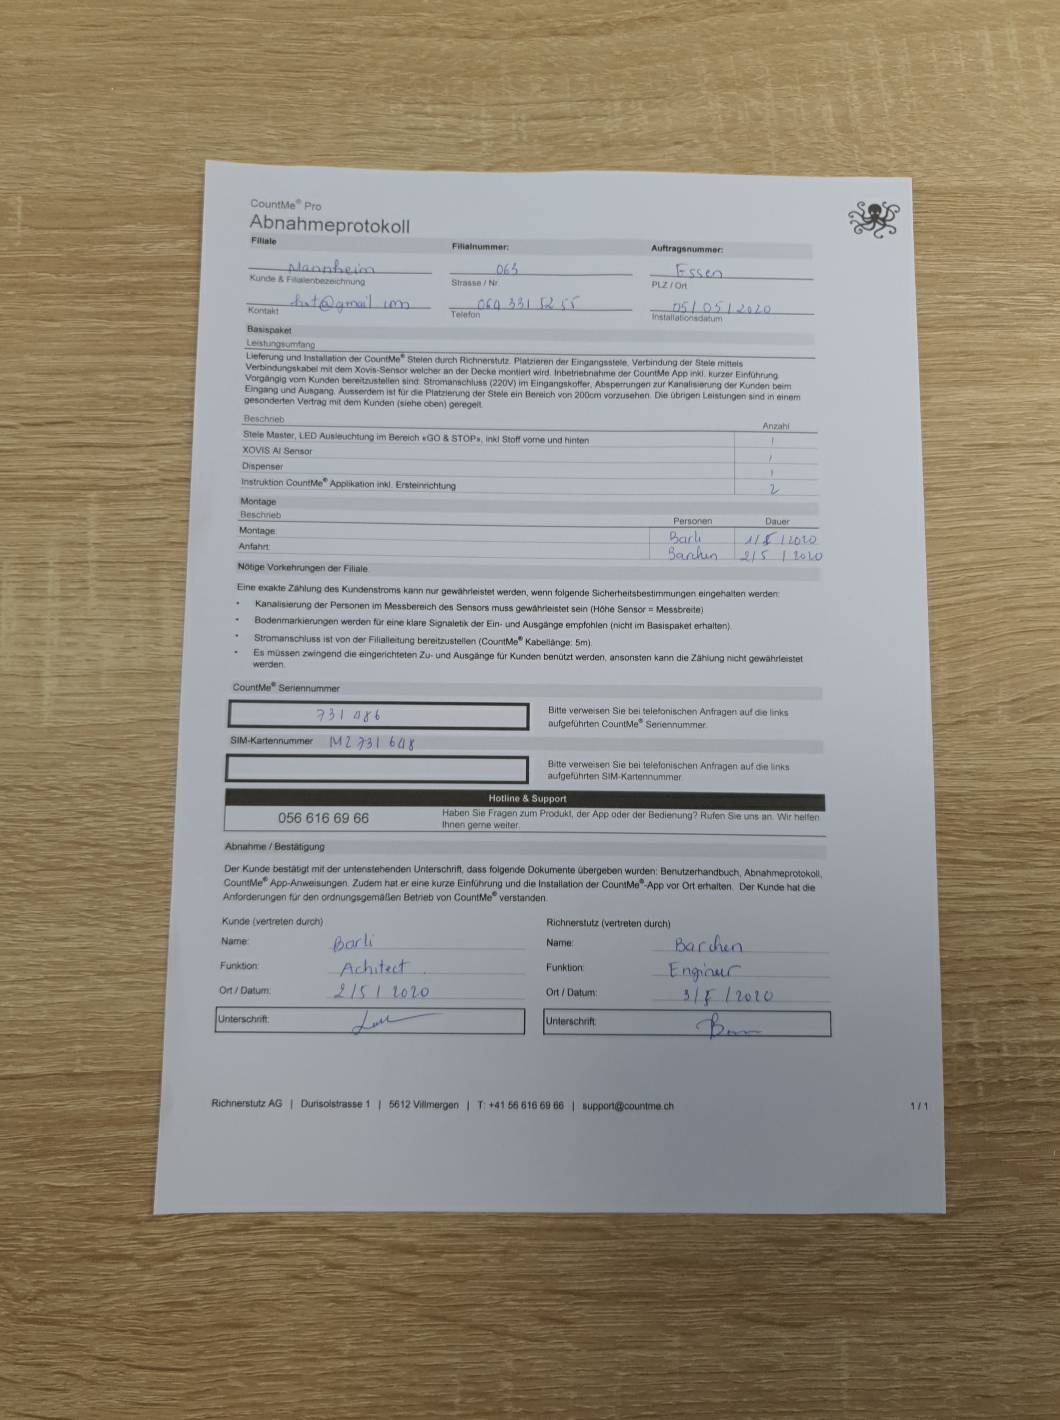 CountMe® Pro
Abnahmeprotokoll
Filiale Filialnummer: Auftragsnummer:
Mannheim 063 Essen
Kunde & Filialenbezeichnung Strasse / Nr. PLZ / Ort
@gmail 05/05/2020
Kontakt Telefon Installationsdatum
Basispaket
Leistungsumfang
Lieferung und Installation der CountMe® Stelen durch Richnerstutz. Platzieren der Eingangsstele. Verbindung der Stele mittels
Verbindungskabel mit dem Xovis-Sensor welcher an der Decke montiert wird. Inbetriebnahme der CountMe App inkl. kurzer Einführung.
Vorgängig vom Kunden bereitzustellen sind: Stromanschluss (220V) im Eingangskoffer, Absperrungen zur Kanalisierung der Kunden beim
Eingang und Ausgang. Ausserdem ist für die Platzierung der Stele ein Bereich von 200cm vorzusehen. Die übrigen Leistungen sind in einem
gesonderten Vertrag mit dem Kunden (siehe oben) geregelt.
Beschrieb Anzahl
Stele Master, LED Ausleuchtung im Bereich «GO & STOP», inkl Stoff vorne und hinten 1
XOVIS AI Sensor 1
Dispenser 1
Instruktion CountMe® Applikation inkl. Ersteinrichtung 2
Montage
Beschrieb Personen Dauer
Montage: Barli 1/5/2020
Anfahrt: Barchen 2/5/2020
Nötige Vorkehrungen der Filiale
Eine exakte Zählung des Kundenstroms kann nur gewährleistet werden, wenn folgende Sicherheitsbestimmungen eingehalten werden:
• Kanalisierung der Personen im Messbereich des Sensors muss gewährleistet sein (Höhe Sensor = Messbreite)
• Bodenmarkierungen werden für eine klare Signaletik der Ein- und Ausgänge empfohlen (nicht im Basispaket erhalten).
• Stromanschluss ist von der Filialleitung bereitzustellen (CountMe® Kabellänge: 5m).
• Es müssen zwingend die eingerichteten Zu- und Ausgänge für Kunden benützt werden, ansonsten kann die Zählung nicht gewährleistet
werden.
CountMe® Seriennummer
731 086 Bitte verweisen Sie bei telefonischen Anfragen auf die links
aufgeführten CountMe® Seriennummer.
SIM-Kartennummer M2 731 608
Bitte verweisen Sie bei telefonischen Anfragen auf die links
aufgeführten SIM-Kartennummer.
Hotline & Support
056 616 69 66 Haben Sie Fragen zum Produkt, der App oder der Bedienung? Rufen Sie uns an. Wir helfen
Ihnen gerne weiter.
Abnahme / Bestätigung
Der Kunde bestätigt mit der untenstehenden Unterschrift, dass folgende Dokumente übergeben wurden: Benutzerhandbuch, Abnahmeprotokoll,
CountMe® App-Anweisungen. Zudem hat er eine kurze Einführung und die Installation der CountMe®-App vor Ort erhalten. Der Kunde hat die
Anforderungen für den ordnungsgemäßen Betrieb von CountMe® verstanden.
Kunde (vertreten durch) Richnerstutz (vertreten durch)
Name: Barli Name: Barchen
Funktion: Achitect Funktion: Engineur
Ort / Datum: 2/5/2020 Ort / Datum: 3/5/2020
Unterschrift: Unterschrift:
Richnerstutz AG | Durisolstrasse 1 | 5612 Villmergen | T: +41 56 616 69 66 | support@countme.ch 1 / 1